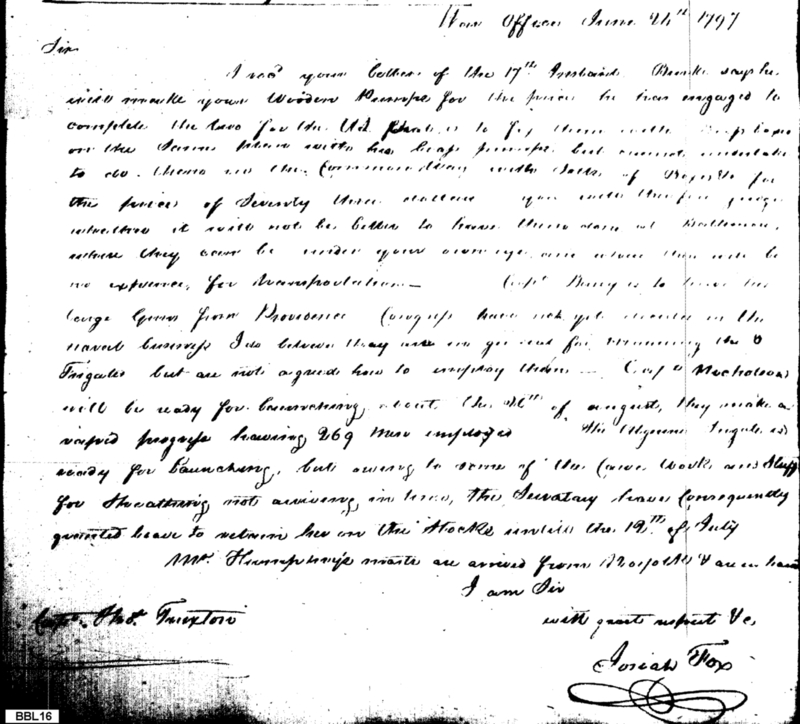 War Office June 24th 1797
Sir
I recd your letter of the 17th Instant says he
will make your Wooden Pumps for the price he has engaged to
complete the two for the U.S. is to fix them with
on the Same plan with his pumps but cannot undertake
to do them in the Common way with of for
the price of Seventy three dollars you will therefore judge
whether it will not be better to have them done at Baltimore,
where they can be under your own eye, and when there will be
no expence, for transportation — Capt Barry is to have his
large Guns from Providence Congress have not yet in the
naval business I do believe they are in general for manning the 3
Frigates but are not agreed how to employ them — Capt Nicholsons
will be ready for launching about the of august, they make a
rapid progress having 269 men employed The Algerine Frigate is
ready for Launching, but owing to some of the and Stuff
for Sheathing not arriving in time, the Secretary have Consequently
granted leave to retain her on the Stocks untill the 12th of July
Mr. Humphreys masts are arrived from & are in
I am Sir
Capt. Thos. Truxton with great respect &c
Josiah Fox
BBL16